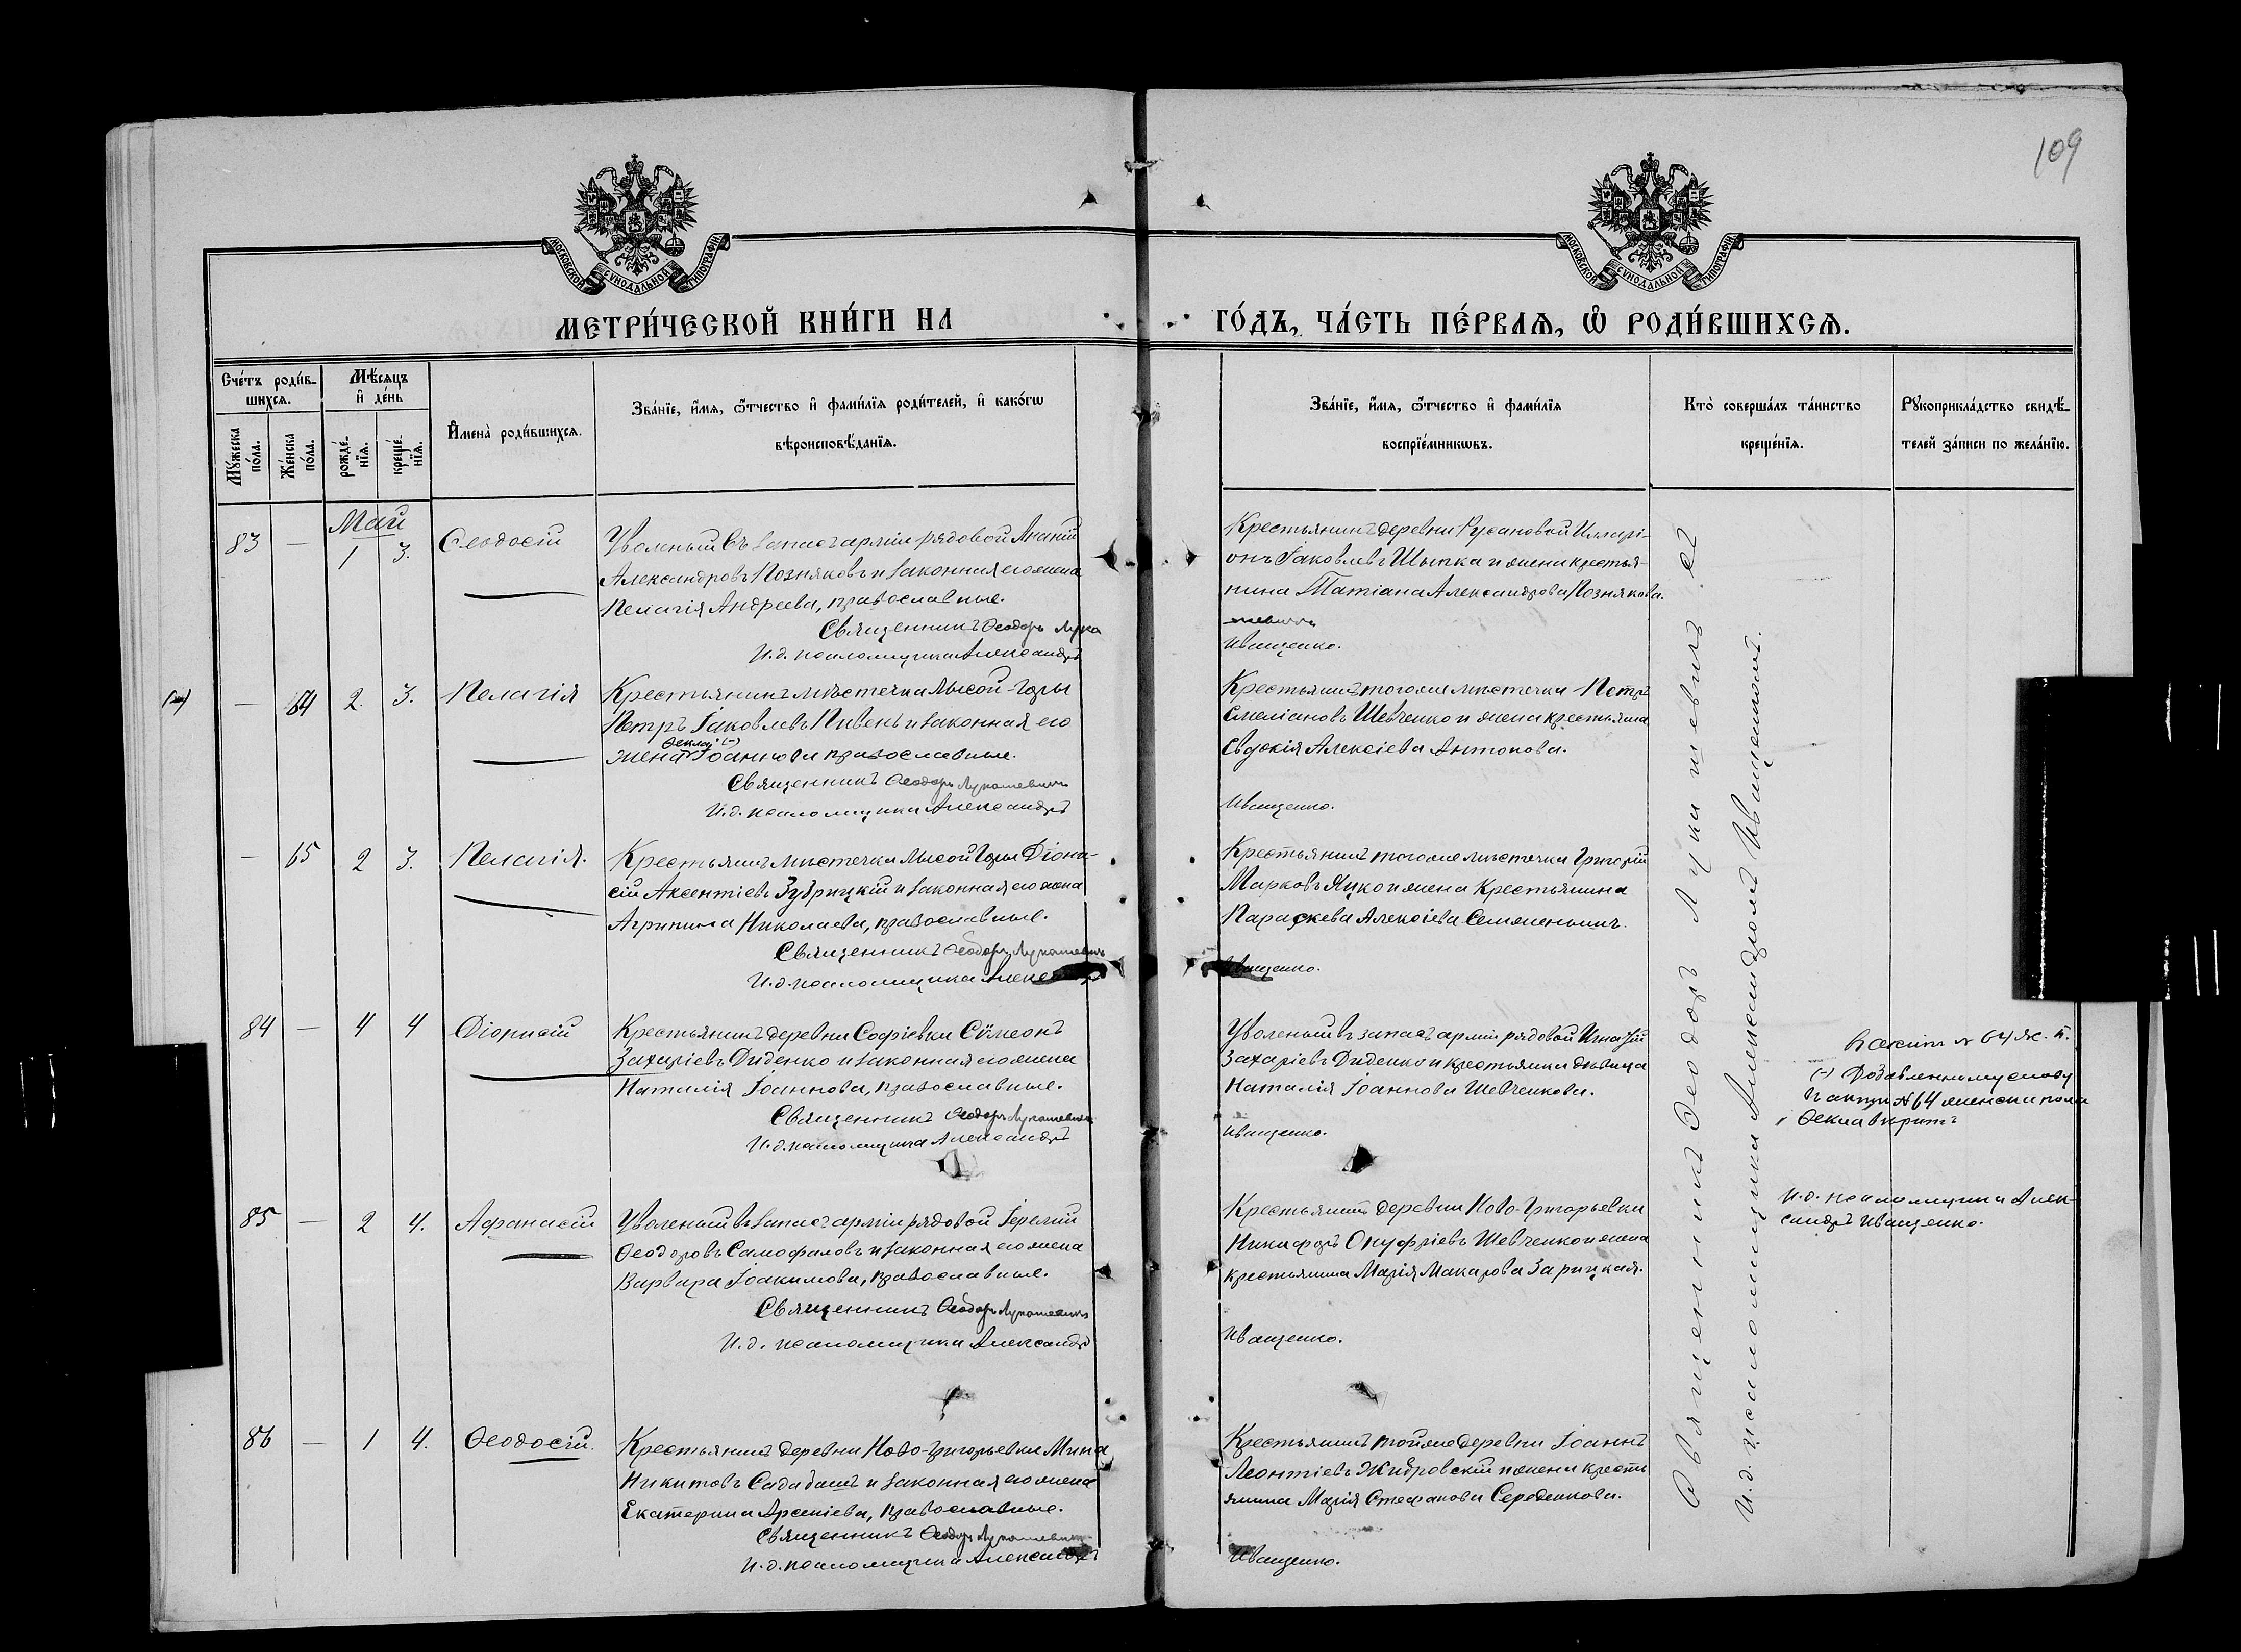 109
МОСКОВСКОЙ СѴНОДАЛЬНОЙ ТИПОГРАФІИ
МОСКОВСКОЙ СѴНОДАЛЬНОЙ ТИПОГРАФІИ
МЕТРИ́ЧЕСКОЙ КНИ́ГИ НА ГО́ДЪ, ЧА́СТЬ ПЕ́РВАѦ, Ѽ РОДИ́ВШИХСѦ.
Сче́тъ роди́в-
шихсѧ.
Мꙋ́жеска по́ла.
Же́нска по́ла.
Мѣ́сѧцъ и҆ де́нь
рожде́-нїѧ.
креще́-нїѧ.
И҆мена̀ роди́вшихсѧ.
Зва́нїе, и҆́мѧ, ѻ҆́тчество и҆ фами́лїѧ роди́телей, и҆ како́гѡ
вѣроисповѣ́данїѧ.
Зва́нїе, и҆́мѧ, ѻ҆́тчество и҆ фами́лїѧ
воспрїе́мникѡвъ.
Кто̀ соверша́лъ та́инство
креще́нїѧ.
Рꙋкоприкла́дство свидѣ́-
телей за́писи по жела́нїю.
Май
83 — 1 3. Ѳеодосій
Уволеный въ запасъ арміи рядовой Ананій
Александровъ Позняковъ и законная его жена
Пелагія Андреева, православные.
Священникъ Ѳеодоръ Лука
И.д. псаломщика Александръ
Крестьянинъ деревни Русановой Иллари-
онъ Іаковлевъ Шыпка и жена крестья-
нина Татіана Александрова Познякова.
шевичъ
Иващенко.
(-) — 64 2. 3. Пелагія
Крестьянинъ мѣстечка Лысой-Горы
Петръ Іаковлевъ Пивень и законная его
Ѳекла (-)
жена Іоаннова православные.
Священникъ Ѳеодоръ Лукашевичъ
И.д. псаломщика Александръ
Крестьянинъ тогоже мѣстечка Петръ
Емеліановъ Шевченко и жена крестьянина
Евдокія Алексіева Антонова.
Иващенко.
— 65 2 3. Пелагія.
Крестьянинъ мѣстечка Лысой Горы Діони-
сій Аксентіевъ Зубрицкій и законная его жена
Агрипина Николаева, православные.
Священникъ Ѳеодоръ Лукашевичъ
И.д. псаломщика Александръ
Крестьянинъ тогоже мѣстечка Григорій
Марковъ Яцко и жена Крестьянина
Параскева Алексіева
Иващенко.
84 — 4 4 Діонисій
Крестьянинъ деревни Софіевки Сѵмеонъ
Захаріевъ Диденко и законная его жена
Наталія Іоаннова, православные.
Священникъ Ѳеодоръ Лукашевичъ
И.д. псаломщика Александръ
Уволеный въ запасъ арміи рядовой Игнатій
Захаріевъ Диденко и крестьянка дѣвица
Наталія Іоаннова Шевченкова.
Иващенко.
№ 64 ж. п.
(-) Добавленному слову
въ актѣ № 64 женска пола
Ѳекла вѣрить
И.д. псаломщика Алек-
сандръ Иващенко.
85 — 2 4. Афанасій
Уволеный въ запасъ арміи рядовой Іеремій
Ѳеодоровъ Самофаловъ и законная его жена
Варвара Іоакимова, православные.
Священникъ Ѳеодоръ Лукашевичъ
И.д. псаломщика Александръ
Крестьянинъ деревни Ново-Григорьевки
Никифоръ Онуфріевъ Шевченко и жена
крестьянина Марія Макарова Зарицкая.
Иващенко.
86 — 1 4. Ѳеодосій.
Крестьянинъ деревни Ново-Григорьевки Мина
Никитовъ Садабашъ и законная его жена
Екатерина Арсеніева, православные.
Священникъ Ѳеодоръ Лукашевичъ
И.д. псаломщика Александръ
Крестьянинъ тойже деревни Іоаннъ
Леонтіевъ Жидровскій и жена кресть
янина Марія Стефанова Середенкова.
Иващенко.
Священникъ Ѳеодоръ Лукашевичъ съ
И.д. псаломщика Александромъ Иващенкомъ.